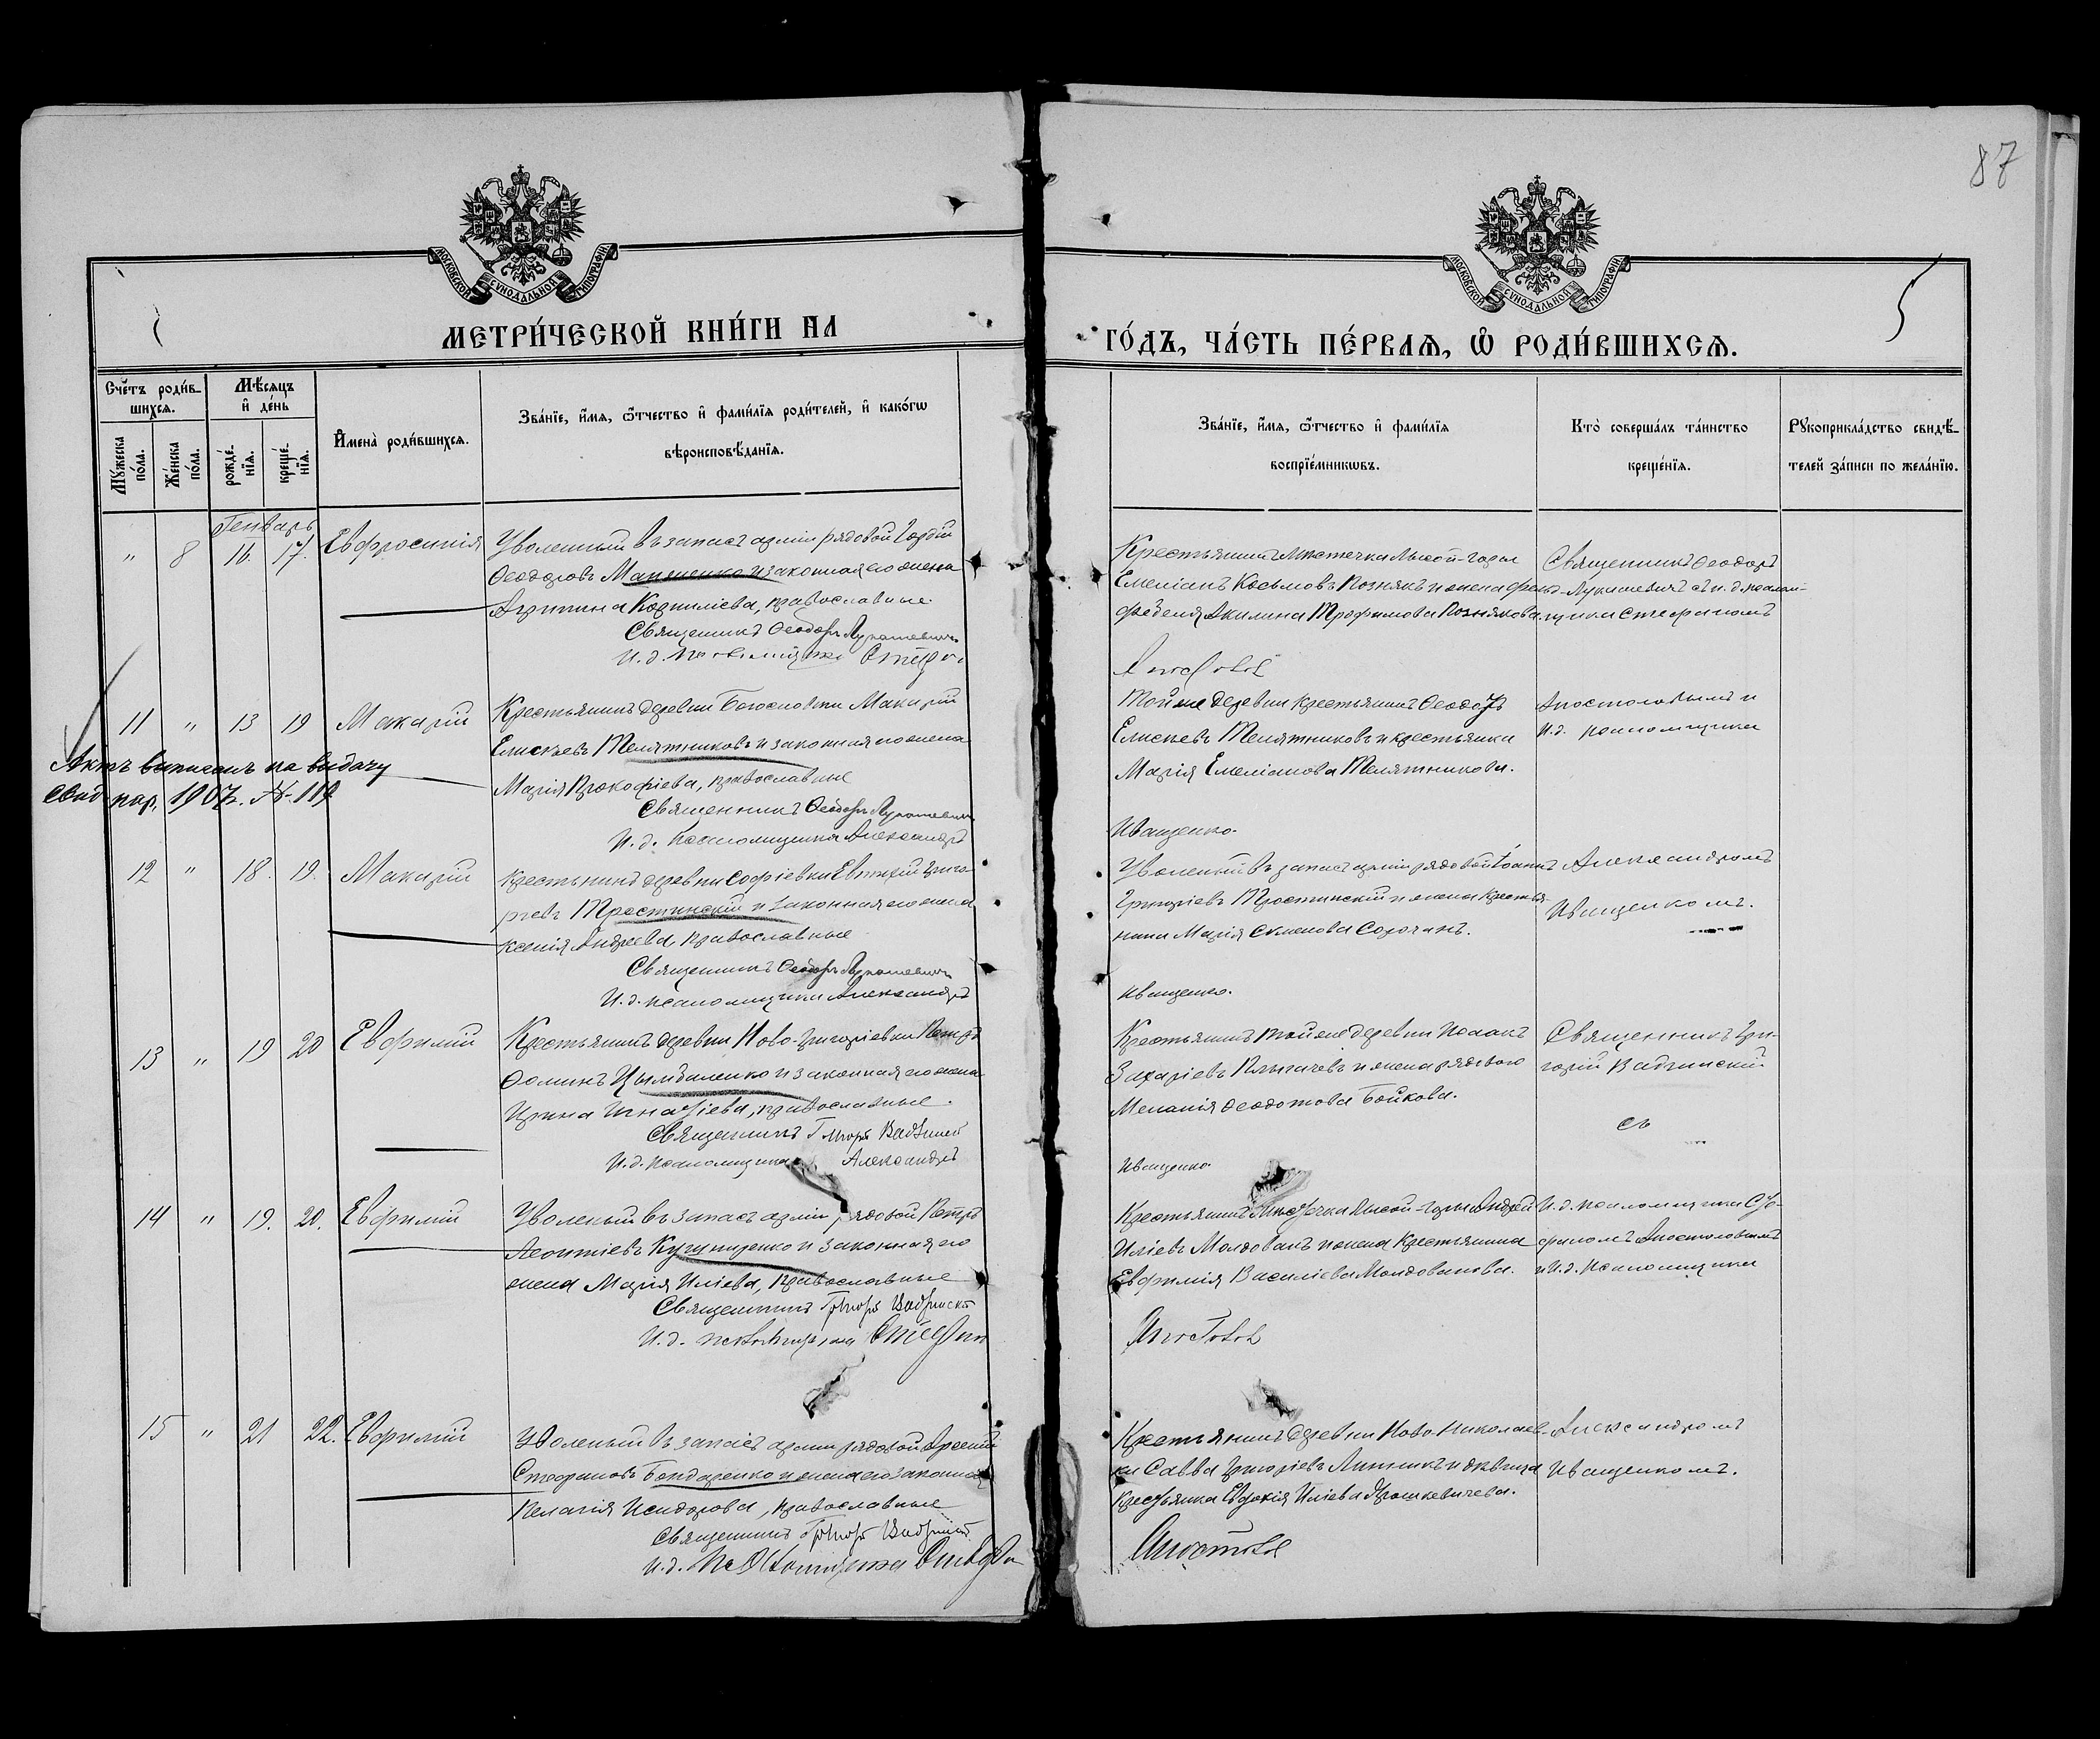 87
МОСКОВСКОЙ СУНОДАЛЬНОЙ ТИПОГРАФІИ
МОСКОВСКОЙ СУНОДАЛЬНОЙ ТИПОГРАФІИ
5
МЕТРИ́ЧЕСКОЙ КНИ́ГИ НА
ГО́ДЪ, ЧА́СТЬ ПЕ́РВАѦ, Ѡ РОДИ́ВШИХСѦ.
Счётъ роди́в-
шихсѧ.
Мꙋ́жеска по́ла.
Же́нска по́ла.
Мѣ́сѧцъ
и҆ де́нь
рожде́-нїѧ.
креще́-нїѧ.
И҆мена̀ роди́вшихсѧ.
Зва́нїе, и҆́мѧ, ѻ҆́тчество и҆ фами́лїѧ роди́телей, и҆ како́гѡ
вѣроисповѣ́данїѧ.
Зва́нїе, и҆́мѧ, ѻ҆́тчество и҆ фами́лїѧ
воспрїе́мникѡвъ.
Кто̀ соверша́лъ та́инство
креще́нїѧ.
Рꙋкоприкла́дство свидѣ́-
телей за́писи по жела́нїю.
Генварь
" 8 16. 17. Евфросинія
Уволенный въ запасъ арміи рядовой Гордій
Ѳеодоровъ законная его жена
Агрипина Корниліева, православные.
Священникъ Ѳеодоръ Лукашевичъ
И. д. псаломщика Стефанъ
Крестьянинъ мѣстечка Лысой-Горы
Емеліанъ Косьмовъ Познякъ и жена фельд-
фебеля Акилина Трофимова Познякова.
Апостоловъ
Священникъ Ѳеодоръ
Лукашевичъ съ и. д. псалом-
щика Стефаномъ
11 " 13 19 Макарій
Крестьянинъ деревни Богословки Макарій
Елисѣевъ Телятниковъ и законная его жена
Марія Прокофіева, православные
Священникъ Ѳеодоръ Лукашевичъ
И. д. Псаломщика Александръ
Актъ выписанъ на выдачу
свид. 1907 г. № 119
Той же деревни крестьянинъ Ѳеодоръ
Елисѣевъ Телятниковъ и крестьянка
Марія Емеліанова Телятникова.
Иващенко.
Апостоловымъ и
И.д. псаломщика
12 " 18. 19. Макарій
Крестьянинъ деревни Софіевки Евтихій Григо-
рьевъ Тростинскій и законная его жена
Ксенія Андреева православные
Священникъ Ѳеодоръ Лукашевичъ
И. д. псаломщика Александръ
Уволенный въ запасъ арміи рядовой Іоаннъ
Григоріевъ Тростинскій и жена крестья-
нина Марія Семенова Сорочанъ.
Иващенко.
Александромъ
Иващенкомъ.
13 " 19 20 Евфимій
Крестьянинъ деревни Ново-Григоріевки Петръ
Ѳоминъ Цымбаленко и законная его жена
Ирина Игнатіева, православные.
Священникъ Григорій Вадзинскій
И. д. псаломщика Александръ
Крестьянинъ той же деревни Исаакъ
Захаріевъ и жена рядового
Меланія Ѳеодотова Бойкова.
Иващенко.
Священникъ Гри-
горій Вадзинскій
съ
14 " 19. 20. Евфимій
Уволеный въ запасъ арміи, рядовой Петръ
Леонтіевъ и законная его
жена Марія Иліева, православные
Священникъ Григорій Вадзинскій
И. д. псаломщика Стефанъ
Крестьянинъ Мѣстечка Лысой-Горы Андрей
Иліевъ Молдованъ и жена крестьянина
Евфимія Василіева Молдованова.
Апостоловъ
И. д. псаломщика Сте-
фаномъ Апостоловымъ
и И. д. Псаломщика
15 " 21 22. Евфимій
Уволеный въ запасъ арміи рядовой Арсеній
Стефановъ Бондаренко и жена его законная
Пелагія Исидорова, православные
Священникъ Григорій Вадзинскій
И. д. Псаломщика Стефанъ
Крестьянинъ деревни Ново-Николаев-
ки Савва Григоріевъ Литникъ и дѣвица
Крестьянка Евдокія Иліева Ярошкевичева.
Апостоловъ
Александромъ
Иващенкомъ.